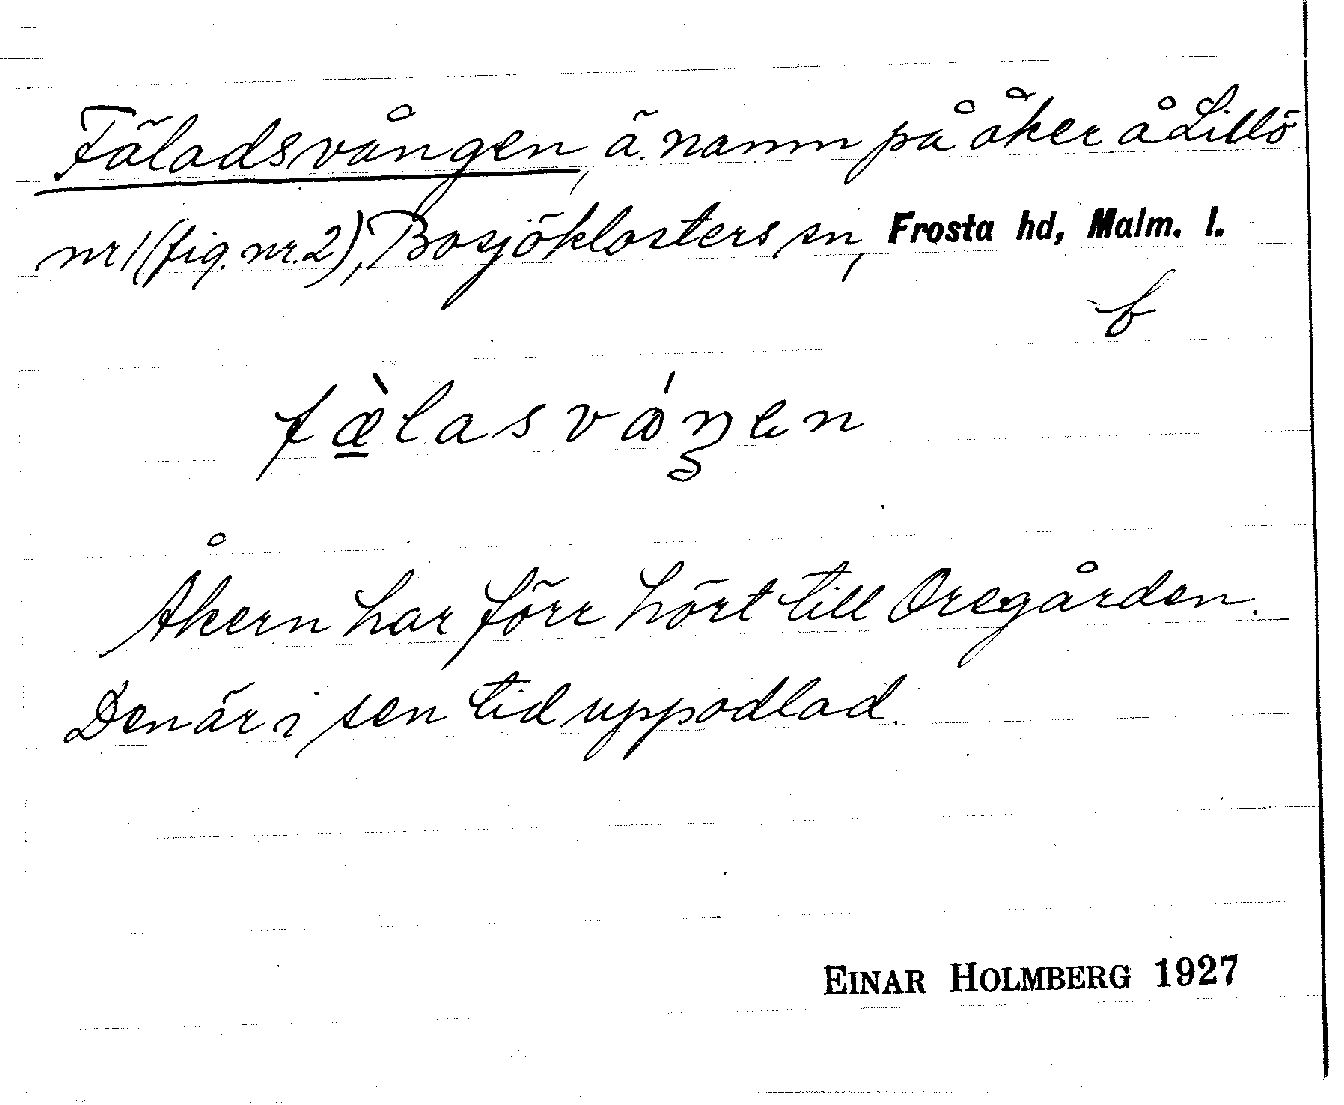 Fäladsvången, ä. namn på åker å Lillö
nr 1 (fig. nr. 2), Bosjöklosters sn, Frosta hd, Malm. l.
b
fæ̀lasváŋen
Åkern har förr hört till Oregården.
Den är i sen tid uppodlad.
EINAR HOLMBERG 1927